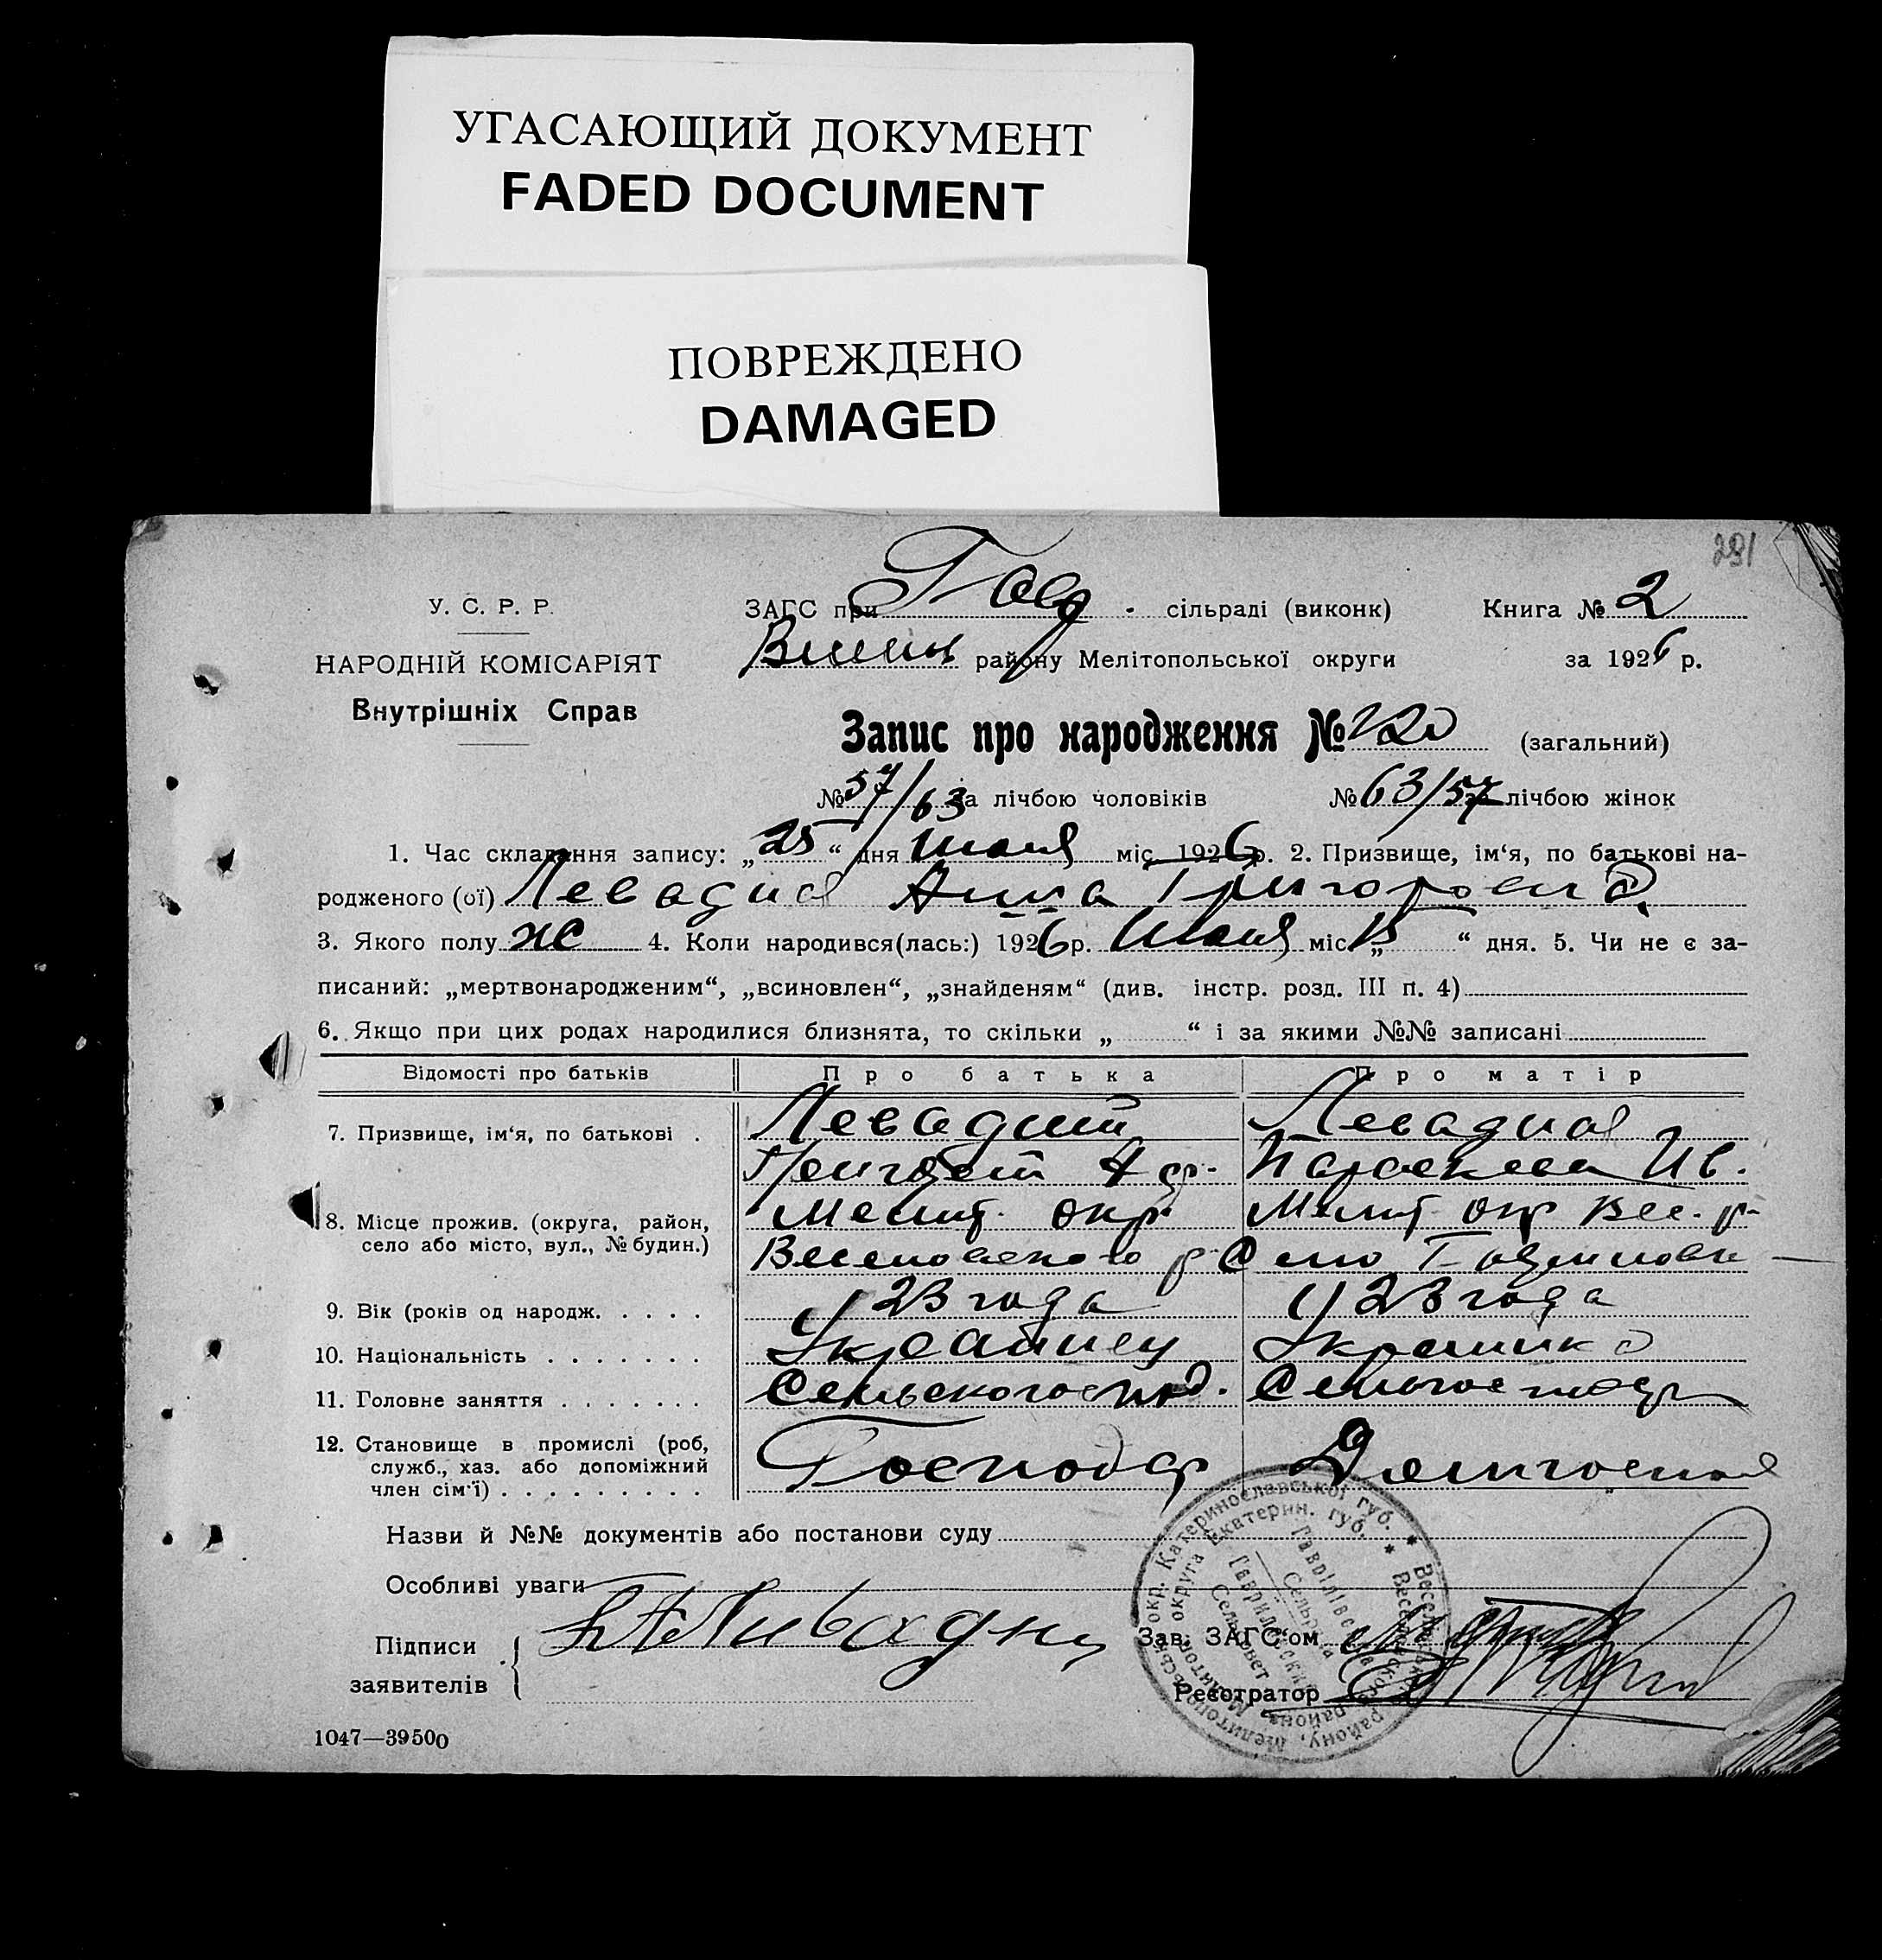 УГАСАЮЩИЙ ДОКУМЕНТ
FADED DOCUMENT
ПОВРЕЖДЕНО
DAMAGED
291
У. С. Р. Р.
ЗАГС при сільраді (виконк) Книга № 2
НАРОДНІЙ КОМІСАРІЯТ
району Мелітопольської округи за 1926 р.
Внутрішніх Справ
Запис про народження № 120 (загальний)
№ 57/63 за лічбою чоловіків № 63/57 лічбою жінок
1. Час складання запису: „25“ дня Июля міс. 1926 р. 2. Призвище, ім‘я, по батькові на-
родженого (ої) Левадная Анна Григоровна
3. Якого полу ж 4. Коли народився(лась:) 1926 р. Июля міс „15“ дня. 5. Чи не є за-
писаний: „мертвонародженим“, „всиновлен“, „знайденям“ (див. інстр. розд. III п. 4)
6. Якщо при цих родах народилися близнята, то скільки „ “ і за якими №№ записані
Відомості про батьків Про батька Про матір
7. Призвище, ім‘я, по батькові . Левадний Левадная
Параскева Ив.
8. Місце прожив. (округа, район, Мелит. окр Мелит окр Вес. р-
село або місто, вул., № будин.) Веселовского р. Село
9. Вік (років од народж. . . . . 23 года 23 года
10. Національність . . . . . . . Украинец Украинка
11. Головне заняття . . . . . . . Сельскогоспод. Сельгосподар
12. Становище в промислі (роб,
служб., хаз. або допоміжний Господар
член сім‘ї) . . . . . . . . .
Назви й №№ документів або постанови суду
Особливі уваги
Підписи Зав. ЗАГС‘ом
заявителів Реєстратор
Мелитопольськ. окр. Катеринославської губ. * Весельівськ. району,
округа Екатерин. губ. * Веселовского района
Гаврілівська Сельрада
Гавриловский Сельсовет
1047—39500